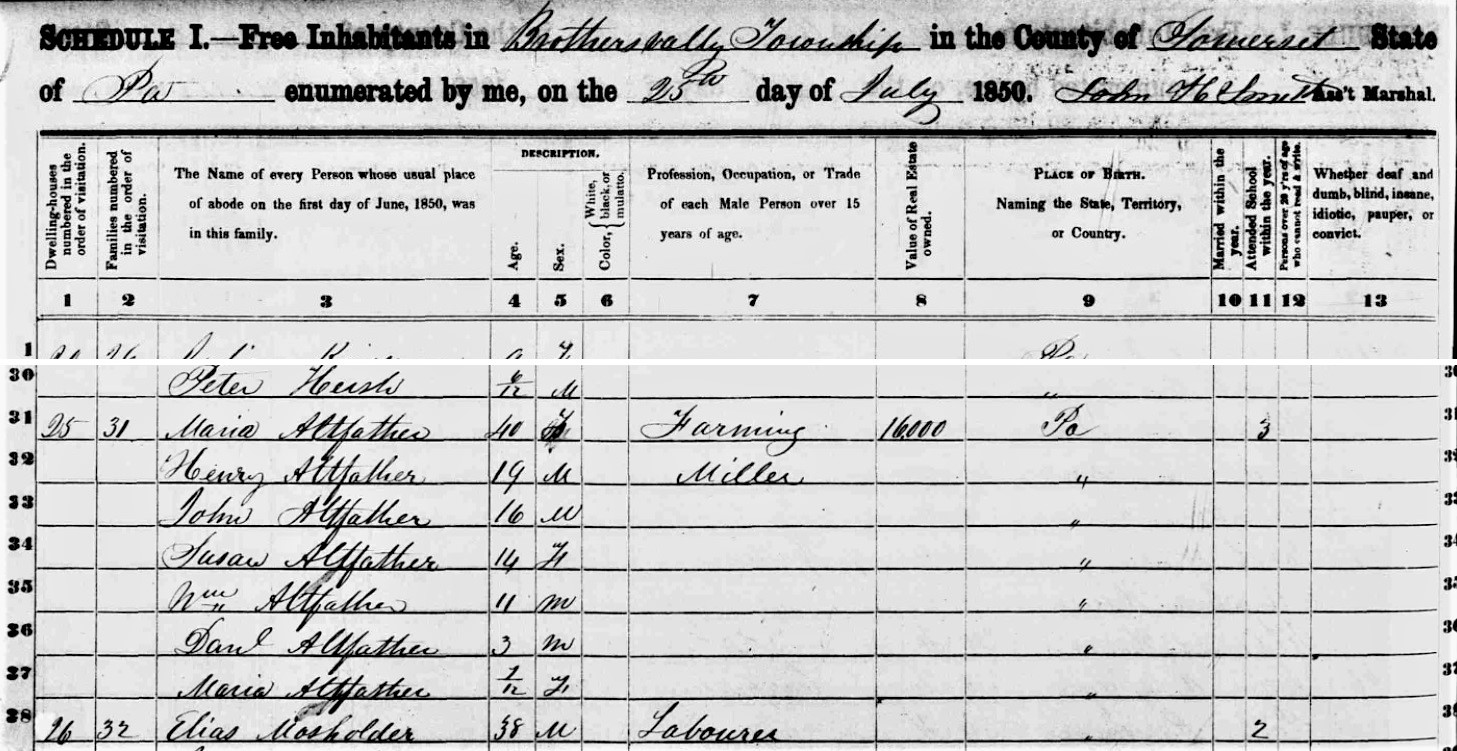 SCHEDULE I.—Free Inhabitants in Brothersvally Township in the County of Somerset State
of Pa enumerated by me, on the 25th day of July 1850. John H Smith Ass't Marshal.
Dwelling-houses numbered in the order of visitation.
Families numbered in the order of visitation.
The Name of every Person whose usual place of abode on the first day of June, 1850, was in this family.
DESCRIPTION.
Age.
Sex.
Color, { White, black, or mulatto.
Profession, Occupation, or Trade of each Male Person over 15 years of age.
Value of Real Estate owned.
PLACE OF BIRTH. Naming the State, Territory, or Country.
Married within the year.
Attended School within the year.
Persons over 20 y'rs of age who cannot read & write.
Whether deaf and dumb, blind, insane, idiotic, pauper, or convict.
1 2 3 4 5 6 7 8 9 10 11 12 13
1
30 Peter Hersh 6/12 M "
31 25 31 Maria Altfather 40 F Farming 16000 Pa 3
32 Henry Altfather 19 M Miller "
33 John Altfather 16 M "
34 Susan Altfather 14 F "
35 Wm Altfather 11 M "
36 Danl Altfather 3 M "
37 Maria Altfather 7/12 F "
38 26 32 Elias Mosholder 38 M Labourer " 2